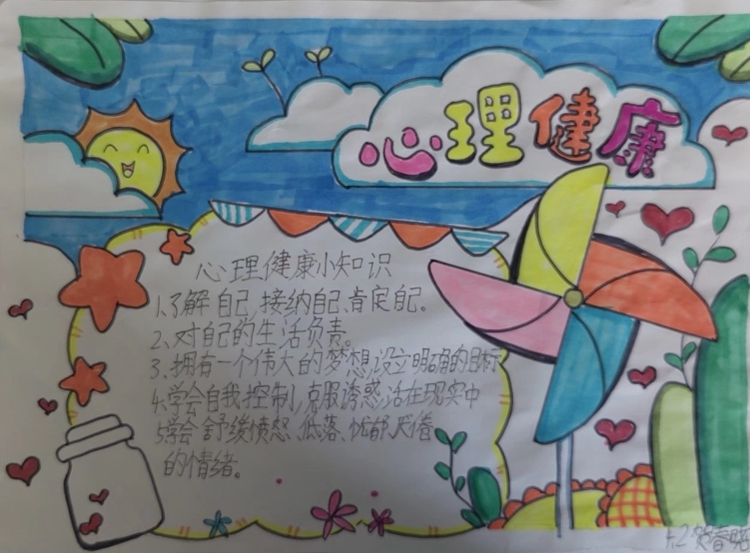 心理健康
心理健康小知识
1.了解自己,接纳自己、肯定自己。
2、对自己的生活负责。
3、拥有一个伟大的梦想,设立明确的目标
4.学会自我控制,克服诱惑,活在现实中
5.学会舒缓愤怒、低落、忧郁、厌倦
的情绪。
4.2